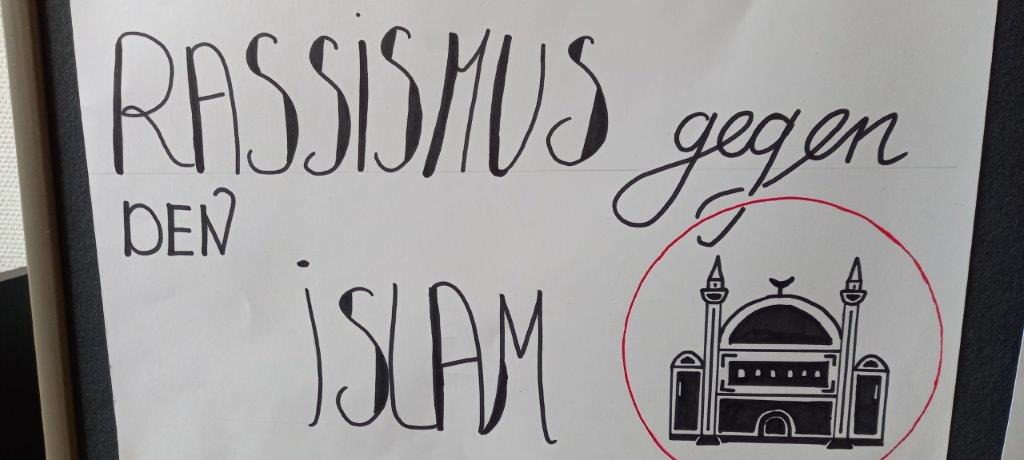 RASSISMUS gegen
DEN
ISLAM